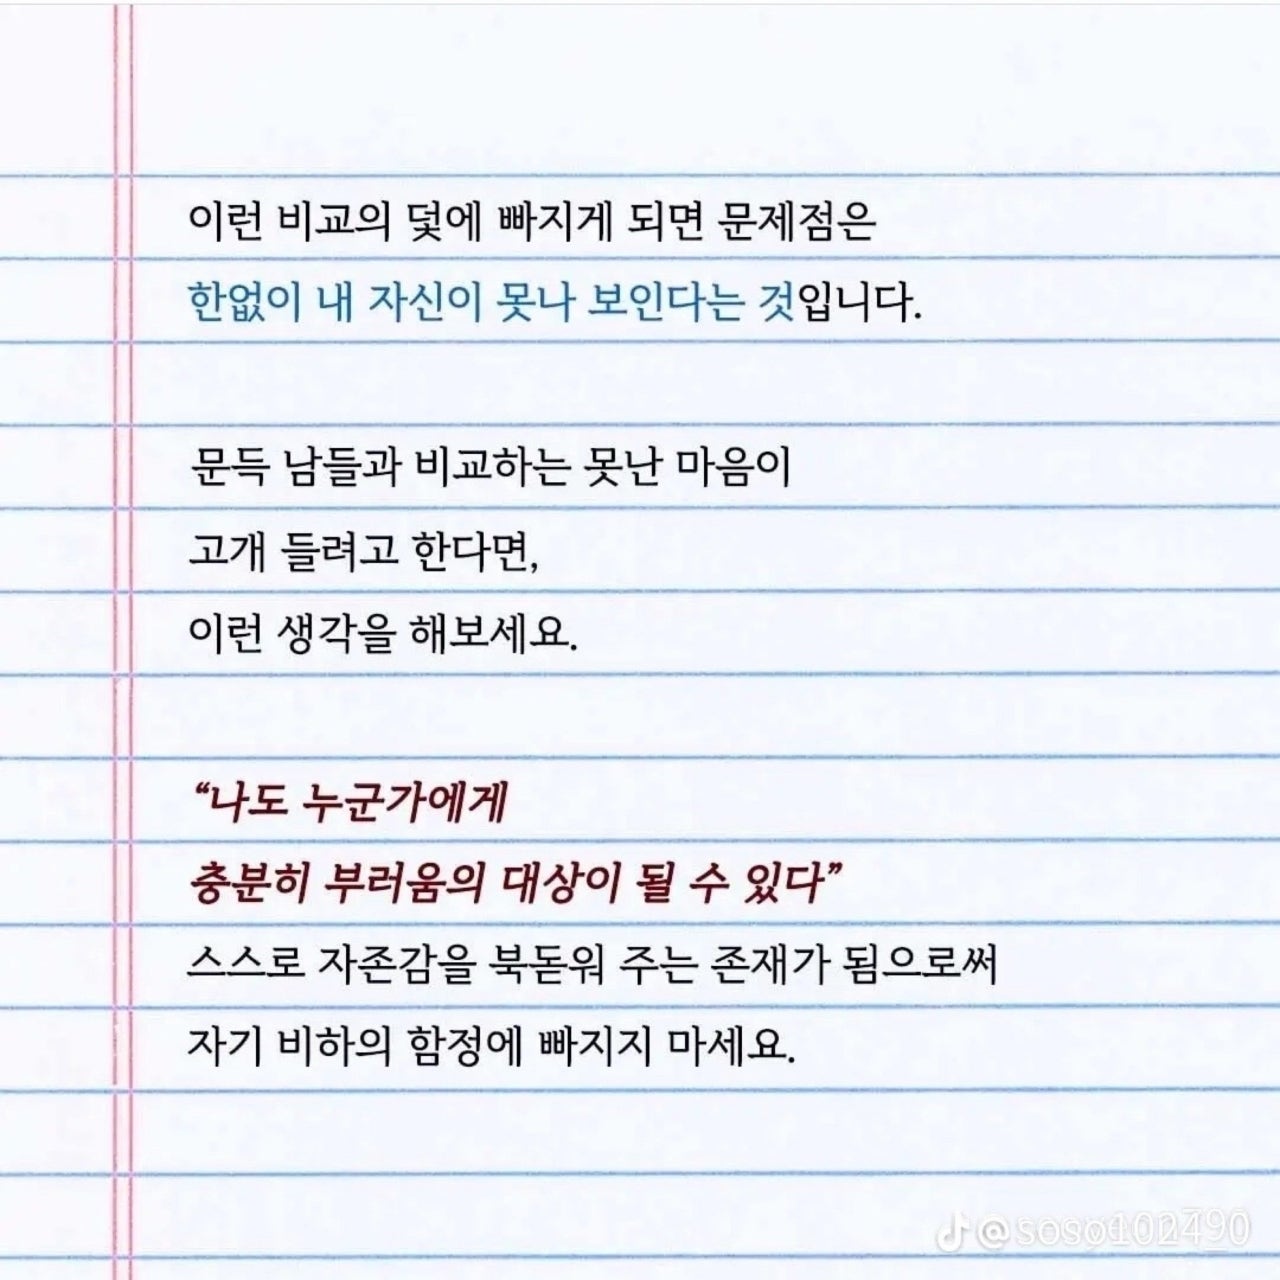 이런 비교의 덫에 빠지게 되면 문제점은
한없이 내 자신이 못나 보인다는 것입니다.
문득 남들과 비교하는 못난 마음이
고개 들려고 한다면,
이런 생각을 해보세요.
“나도 누군가에게
충분히 부러움의 대상이 될 수 있다”
스스로 자존감을 북돋워 주는 존재가 됨으로써
자기 비하의 함정에 빠지지 마세요.